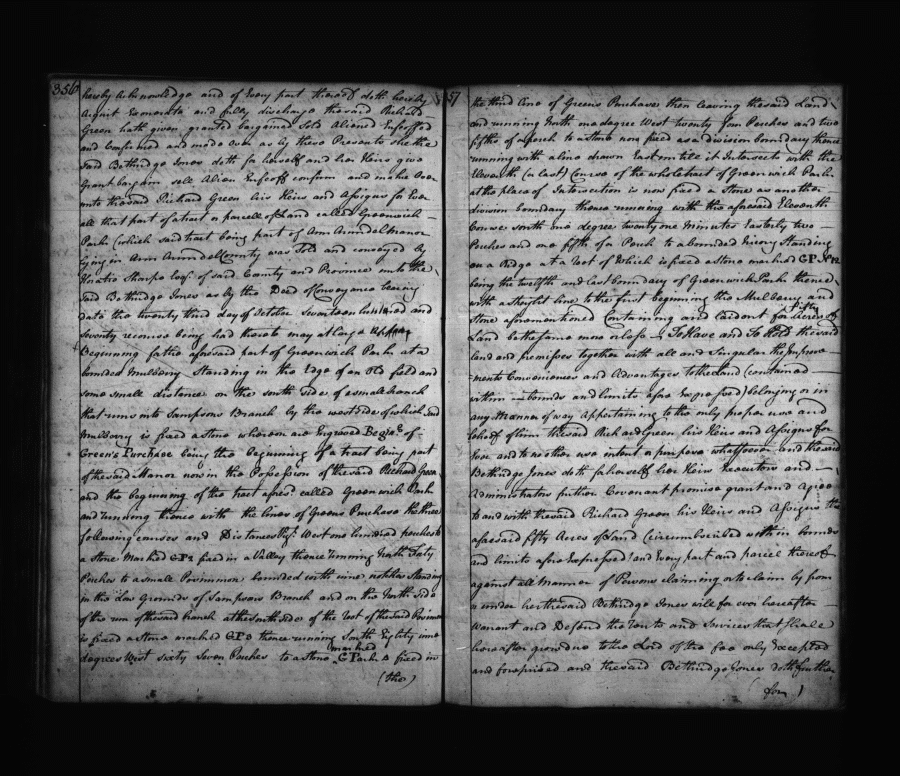 356
hereby Acknowledge and of Every part thereof doth hereby
Acquit Exonerate and fully discharge the said Richard
Green hath given granted bargained sold Aliend Enfeoffed
and Confirmed and made over as by these Presents she the
said Bethridge Jones doth for herself and her Heirs give
Grant bargain sell Alien Enfeoff confirm and make Over
unto the said Richard Green his Heirs and Assigns for Ever
all that part of a tract or parcell of Land called Greenwich
Park (which said tract being part of Ann Arundel Manor
Lying in Ann Arundel County was Sold and conveyed by
Horatio Sharpe Esqr. of said County and Province unto the
said Bethridge Jones as by the Deed of Conveyance bearing
date the twenty third day of October Seventeen hundred and
Seventy recourse being had thereto may at large Appear
Beginning for the aforesaid part of Greenwich Park at a
bounded Mulberry Standing in the Edge of an Old field and
some small distance on the south side of a small branch
that runs into Sampsons Branch by the west side of which
Mulberry is fixed a Stone whereon are Engraved Beging. of
Green's Purchase being the beginning of a tract being part
of the said Manor now in the Possession of the said Richard Green
and the beginning of the tract aforesd. called Greenwich Park
and running thence with the lines of Greens Purchase the three
following courses and Distances Vizt. West one hundred perches to
a Stone Marked GP2 fixed in a Valley thence running North Forty
Perches to a small Persimmon bounded with nine notches Standing
in the Low Grounds of Sampsons Branch and on the North side
of the run of the said branch at the south side of the Root of the said Persimon
is fixed a Stone marked GP3 thence running South Eighty nine
degrees West sixty Seven Perches to a Stone marked G Park 4 fixed in
(the)
57
the third line of Greens Purchase then leaving the said Land
and running North one degree West twenty four Perches and two
fifths of a perch to a Stone now fixed as a division boundary thence
running with a line drawn East until it Intersects with the
Eleventh (or last) Course of the whole tract of Greenwich Park
at the place of Intersection is now fixed a Stone as another
division boundary thence running with the aforesaid Eleventh
Course south one degree twenty one Minutes Easterly two
Perches and one fifth of a Perch to a bounded hicory Standing
on a Ridge at a root of Which is fixed a Stone marked GP No. 12
being the twelfth and last boundary of Greenwich Park thence
with a straight line to the first beginning the Mulberry and
Stone aforementioned Containing and laid out for fifty Acres of
Land be the same more or less To Have and To Hold the said
land and premisses together with all and Singular the Improve-
ments Conveniences and Advantages to the Land (contained
within bounds and limits afore Expressed) belonging or in
any manner of way Appertaining to the only proper use and
behoof of him the said Richard Green his Heirs and Assigns for
Ever and to no other use intent or purpose whatsoever and the said
Bethridge Jones doth for herself her Heirs Executors and
Administrators further Covenant promise grant and Agree
to and with the said Richard Green his Heirs and Assigns the
aforesaid fifty Acres of Land circumscribed within bounds
and limits afore Expressed and Every part and parcel thereof
against all Manner of Persons claiming or to claim by from
or under her the said Bethridge Jones will for ever hereafter
Warrant and Defend the Rents and Services that shall
hereafter grow due to the Lord of the fee only Excepted
and foreprised and the said Bethridge Jones doth further
(for)